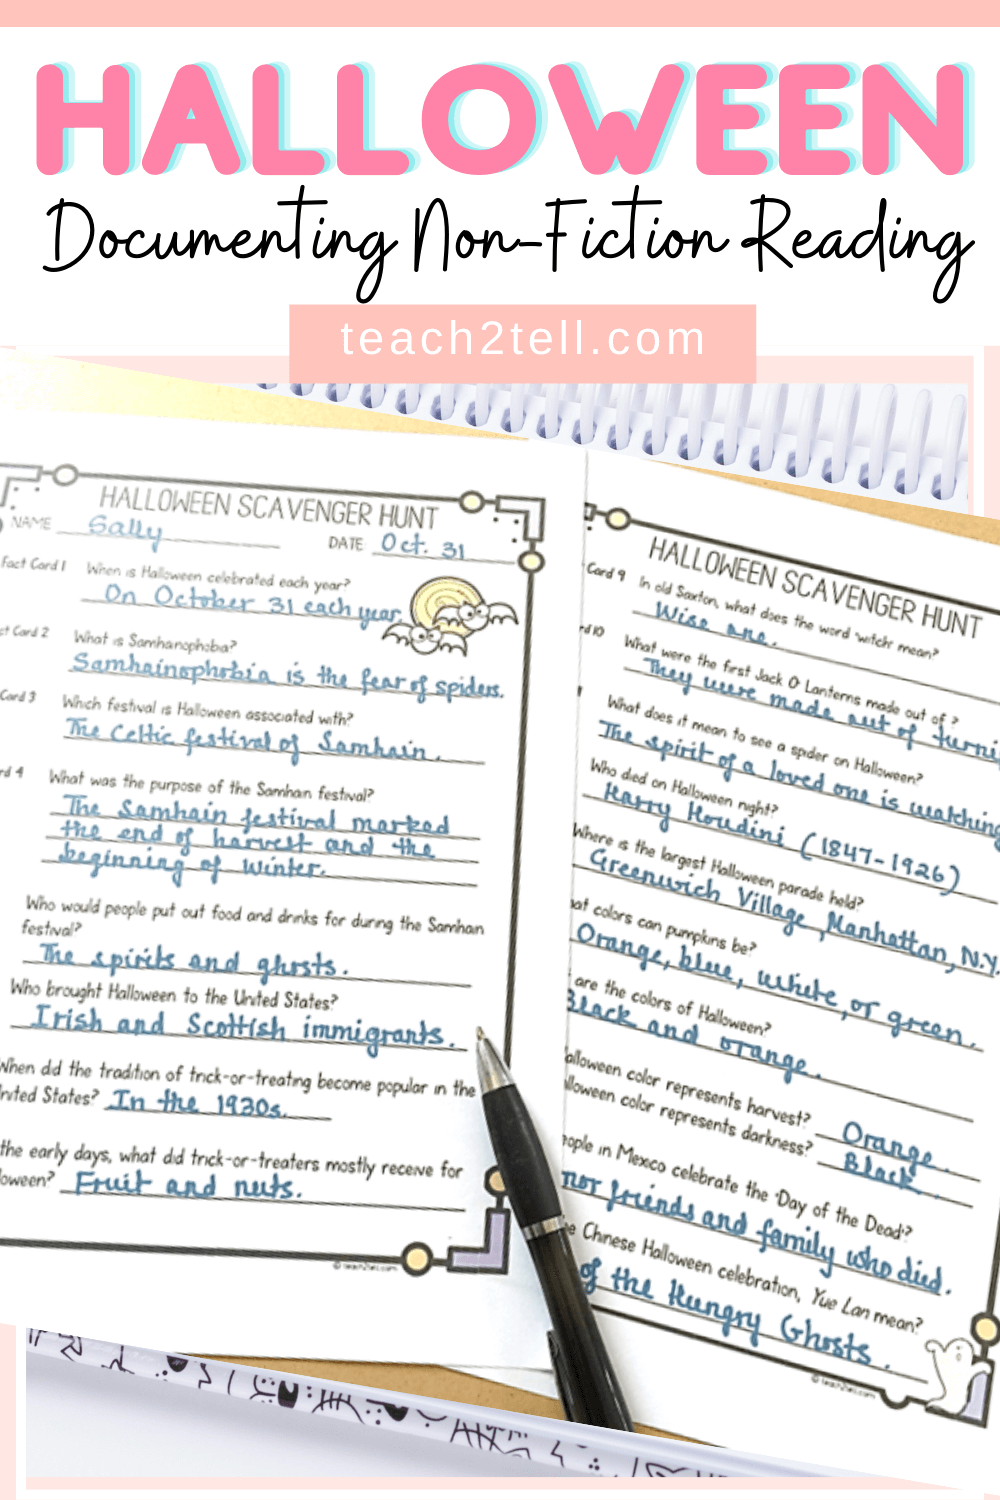 HALLOWEEN
Documenting Non-Fiction Reading
teach2tell.com
HALLOWEEN SCAVENGER HUNT
NAME Sally
DATE Oct. 31
Fact Card 1 When is Halloween celebrated each year?
On October 31 each year.
Card 2 What is Samhanophoba?
Samhainophobia is the fear of spiders.
Card 3 Which festival is Halloween associated with?
The Celtic festival of Samhain.
4 What was the purpose of the Samhain festival?
The Samhain festival marked
the end of harvest and the
beginning of winter.
Who would people put out food and drinks for during the Samhain
festival?
The spirits and ghosts.
Who brought Halloween to the United States?
Irish and Scottish immigrants.
When did the tradition of trick-or-treating become popular in the
United States? In the 1930s.
the early days, what did trick-or-treaters mostly receive for
loween? Fruit and nuts.
© teach2tell.com
HALLOWEEN SCAVENGER HUNT
Card 9 In old Saxton, what does the word 'witch' mean?
Wise one.
10 What were the first Jack O' Lanterns made out of ?
They were made out of turni
What does it mean to see a spider on Halloween?
The spirit of a loved one is watching
Who died on Halloween night?
Harry Houdini (1847-1926)
Where is the largest Halloween parade held?
Greenwich Village, Manhattan, N.Y.
at colors can pumpkins be?
Orange, blue, white, or green.
are the colors of Halloween?
Black and orange.
alloween color represents harvest? Orange.
lloween color represents darkness? Black.
eople in Mexico celebrate the 'Day of the Dead'?
nor friends and family who died.
e Chinese Halloween celebration, Yue Lan mean?
of the Hungry Ghosts.
© teach2tell.com